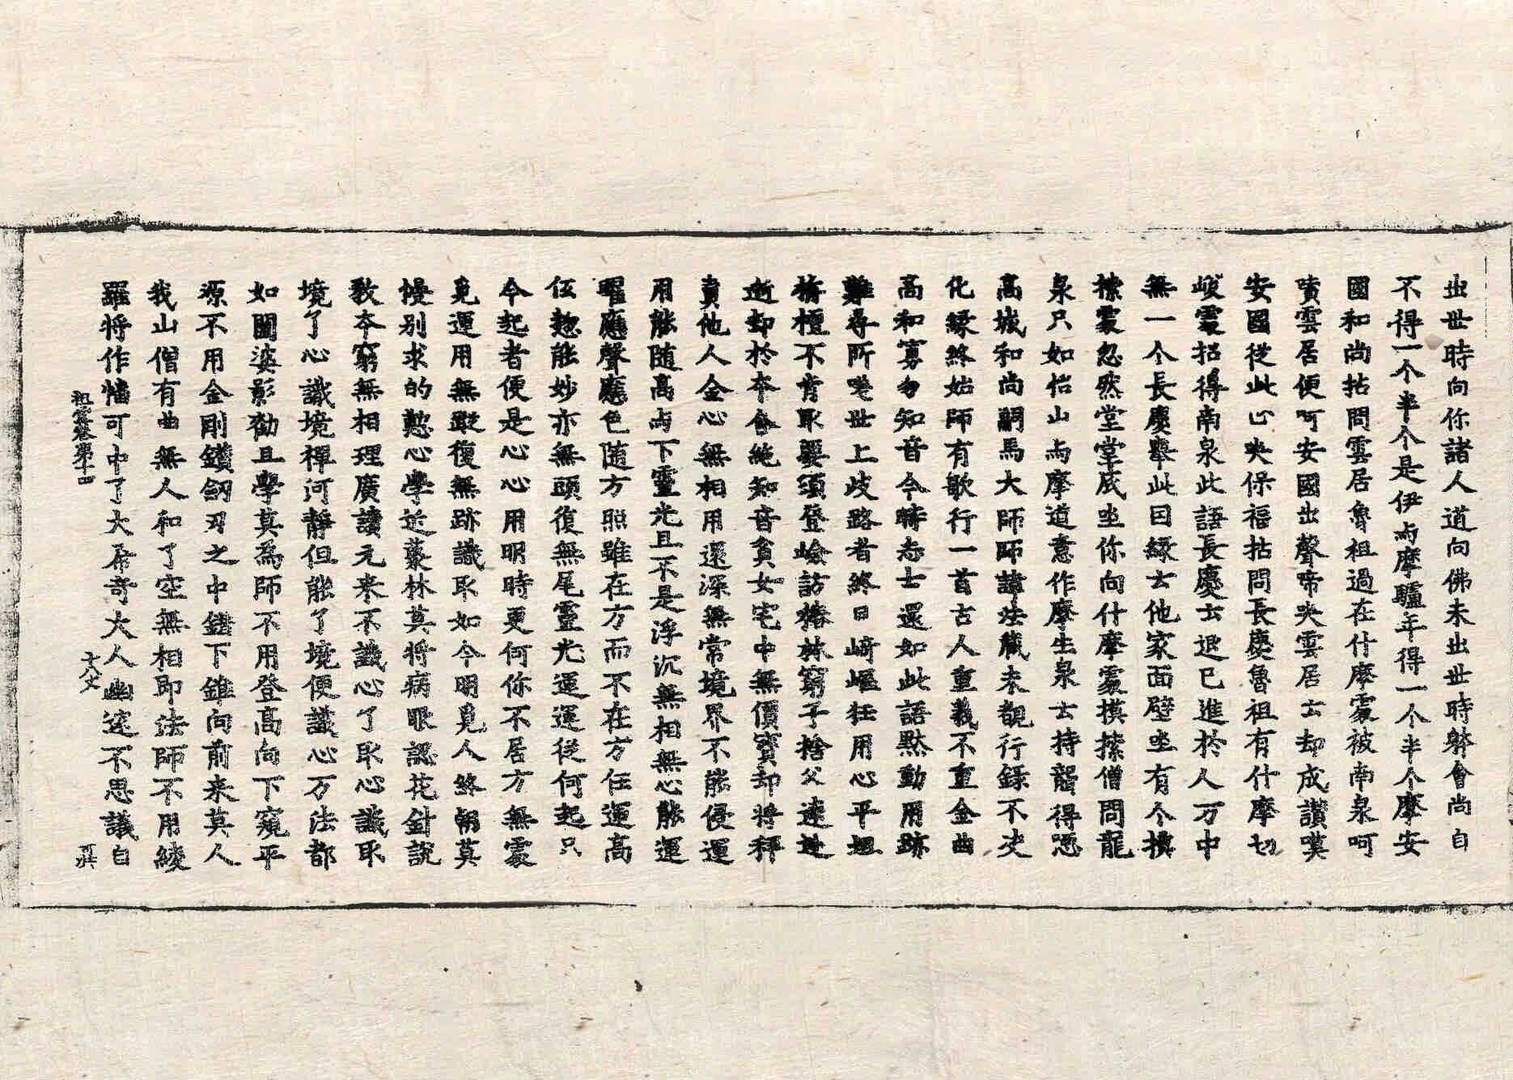 出世時向你諸人道向佛未出世時躰會尚自
不得一个半个是伊与摩驢年得一个半个摩安
國和尚拈問雲居魯祖過在什摩處被南泉呵
嘖雲居便呵安國出聲啼哭雲居云却成讃嘆
安國從此止哭保福拈問長慶魯祖有什摩切
峻處招得南泉此語長慶云退己進於人万中
無一个長慶擧此因緣云他家面壁坐有个摸
㩇處忽然堂堂底坐你向什摩處摸㩇僧問龍
泉只如怡山与摩道意作摩生泉云持聾得啞
高城和尚嗣馬大師師諱法藏未覩行錄不决
化緣終始師有歌行一首古人重義不重金曲
高和寡勿知音今時志士還如此語默動用跡
難尋所嗟世上歧路者終日﨑嶇枉用心平坦
栴檀不肯取要須登嶮訪椿林窮子捨父遠逃
逝却於本舍絶知音貧女宅中無價寳却將秤
賣他人金心無相用還深無常境界不能侵運
用能随高与下靈光且不是浮沉無相無心能運
曜應聲應色隨方照雖在方而不在方任運高
伍惣能妙亦無頭復無尾靈光運運從何起只
今起者便是心心用明時更何你不居方無處
覓運用無蹤復無跡識取如今明覓人終朝莫
慢别求的懃心學近藂林莫將病眼認花針說
教夲窮無相理廣讀元来不識心了取心識取
境了心識境禪河靜但能了境便識心万法都
如闥婆影勸且學莫為師不用登高向下窺平
源不用金剛鑽劒刃之中錯下錐向前来莫人
我山僧有曲無人和了空無相即法師不用綾
羅將作幡可中了大希奇大人幽邃不思議自
祖堂卷第十四 十八丈